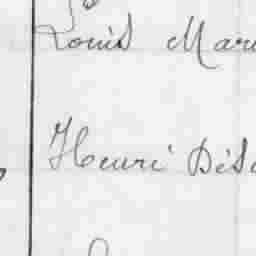 Louis Mar
Henri Dés